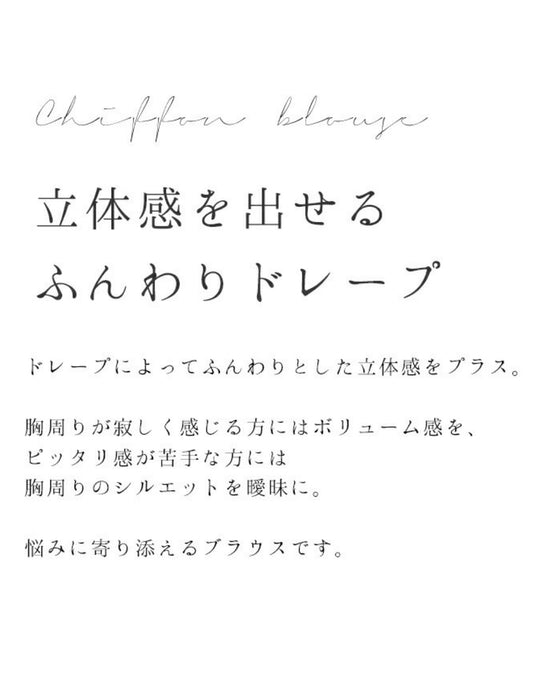 Chiffon blouse
立体感を出せる
ふんわりドレープ
ドレープによってふんわりとした立体感をプラス。
胸周りが寂しく感じる方にはボリューム感を、
ピッタリ感が苦手な方には
胸周りのシルエットを曖昧に。
悩みに寄り添えるブラウスです。